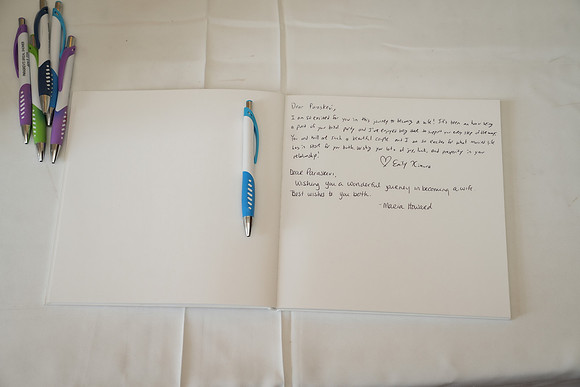 Dear Paraskevi,
I am so excited for you in this journey to becoming a wife! It's been an honor being
a part of your bridal party and I've enjoyed being able to support you every step of the way.
You and will are such a beautiful couple and I am so excited for what married life
has in store for you both. Wishing you lots of joy, luck, and prosperity in your
relationship!
♡ Emily
Dear Paraskevi,
Wishing you a wonderful journey in becoming a wife.
Best wishes to you both.
-Maria Howard